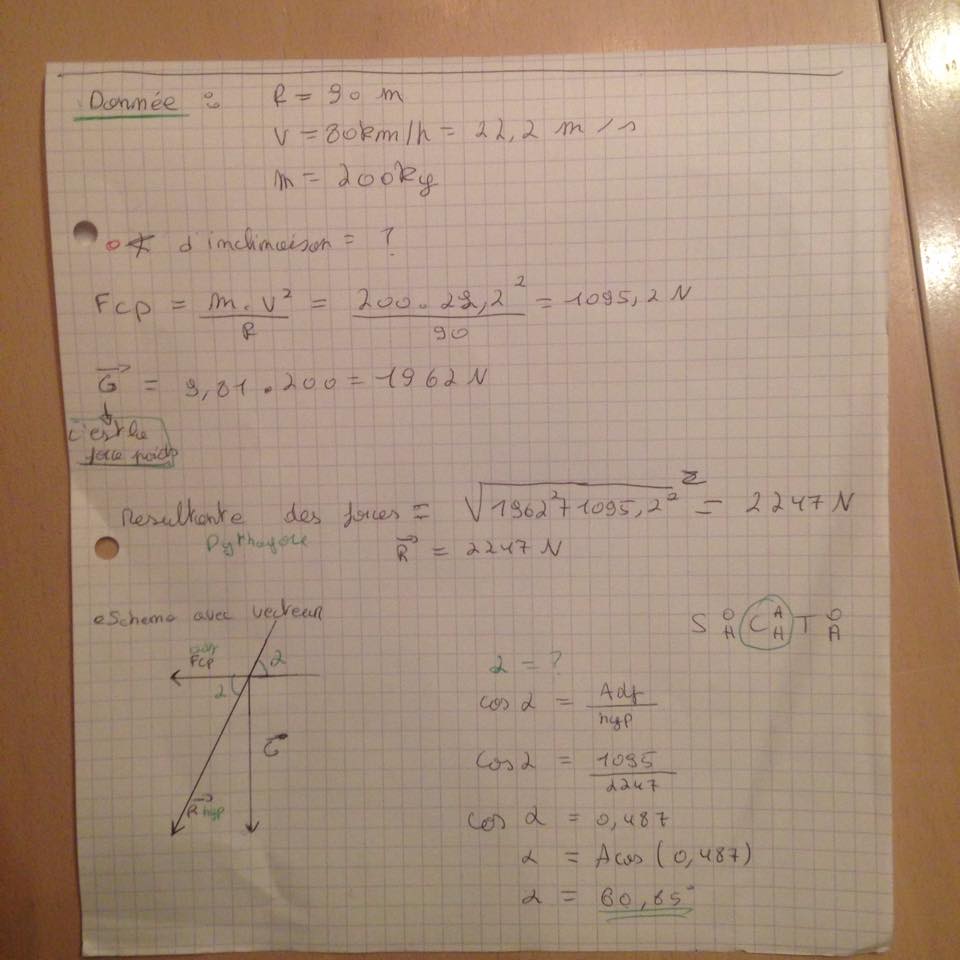 Donnée : R = 90 m
V = 80km/h = 22,2 m/s
m = 200kg
∢ d'inclinaison = ?
Fcp = m . v² / R = 200 . 22,2² / 90 = 1095,2 N
G⃗ = 9,81 . 200 = 1962 N
c'est la
force poids
Resultante des forces = √(1962² + 1095,2²) = 2247 N
Pythagore
R⃗ = 2247 N
Schema avec vecteur
S O/H C A/H T O/A
adj
Fcp
α
α
G⃗
R⃗ hyp
α = ?
cos α = Adj / hyp
cos α = 1095 / 2247
cos α = 0,487
α = Acos (0,487)
α = 60,85°